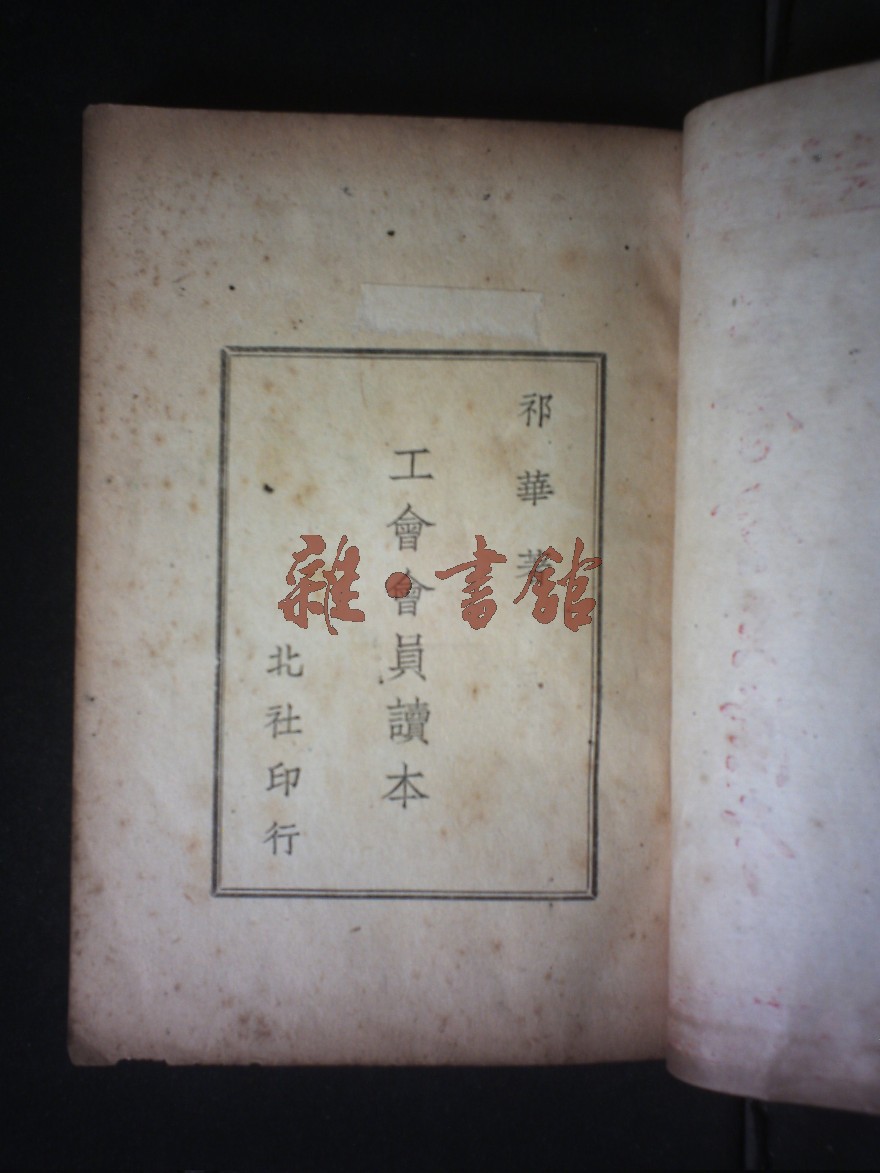 祁華著
工會會員讀本
北社印行
雜·書館